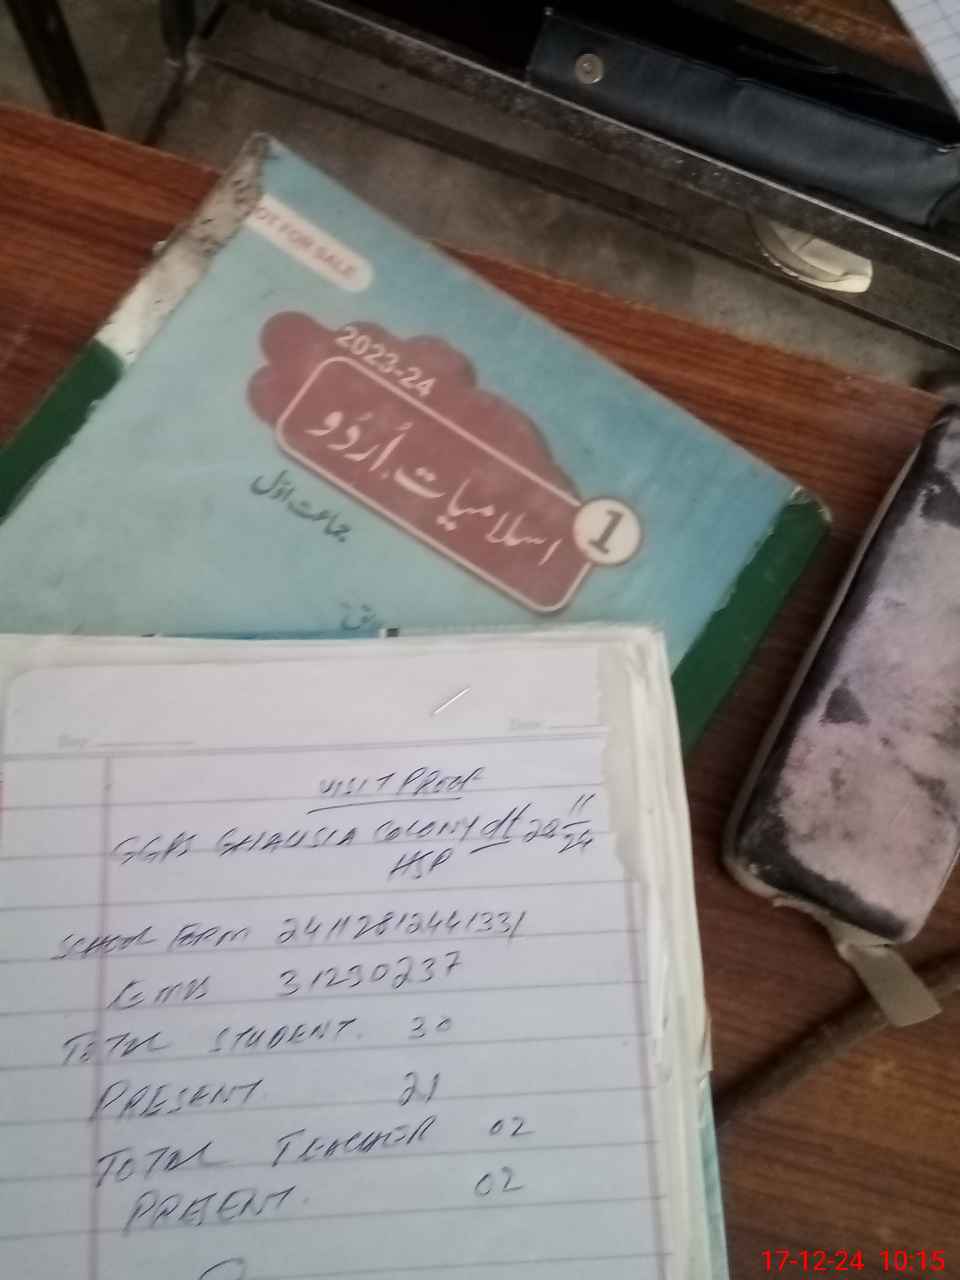 OT FOR SALE
2023-24
اسلامیات اُردُو
1
جماعت اوّل
VISIT PROOF
GGPS GHAUSIA COLONY dt 28 11/24
HSP
SCHOOL FORM 24112812441331
EMIS 31230237
TOTAL STUDENT. 30
PRESENT 21
TOTAL TEACHER 02
PRESENT. 02
17-12-24 10:15